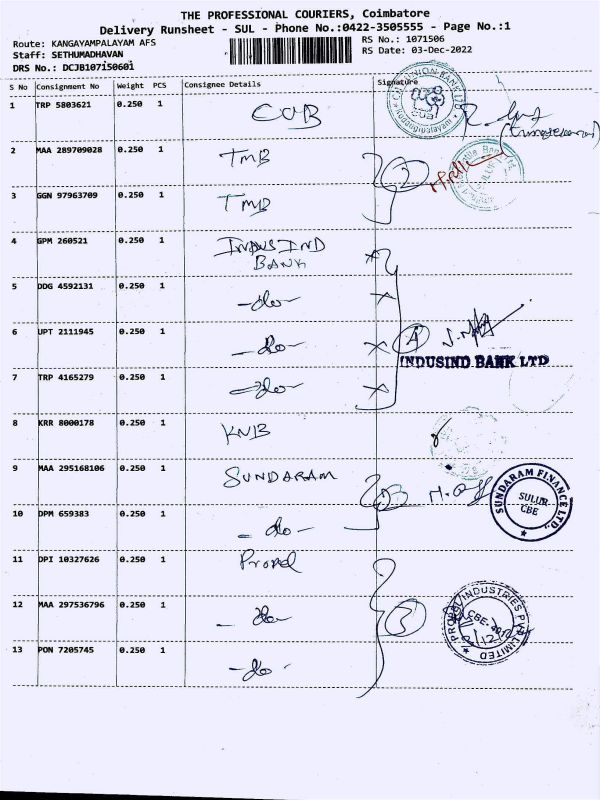 THE PROFESSIONAL COURIERS, Coimbatore
Delivery Runsheet - SUL - Phone No.:0422-3505555 - Page No.:1
Route: KANGAYAMPALAYAM AFS
Staff: SETHUMADHAVAN
DRS No.: DCJB107150601
RS No.: 1071506
RS Date: 03-Dec-2022
S No Consignment No Weight PCS Consignee Details Signature
1 TRP 5803621 0.250 1 CUB
2 MAA 289709028 0.250 1 TMB
3 GGN 97963709 0.250 1 TMB
2
4 GPM 260521 0.250 1 INDUSIND
BANK
5 DDG 4592131 0.250 1 -do-
6 UPT 2111945 0.250 1 -do-
4
INDUSIND BANK LTD
7 TRP 4165279 0.250 1 -do-
8 KRR 8000178 0.250 1 KVB
9 MAA 295168106 0.250 1 SUNDARAM
SUNDARAM FINANCE LTD.,
SULUR
CBE
10 DPM 659383 0.250 1 -do-
11 DPI 10327626 0.250 1 Propel
12 MAA 297536796 0.250 1 -do-
3
PROPEL INDUSTRIES PVT LIMITED
13 PON 7205745 0.250 1 -do-